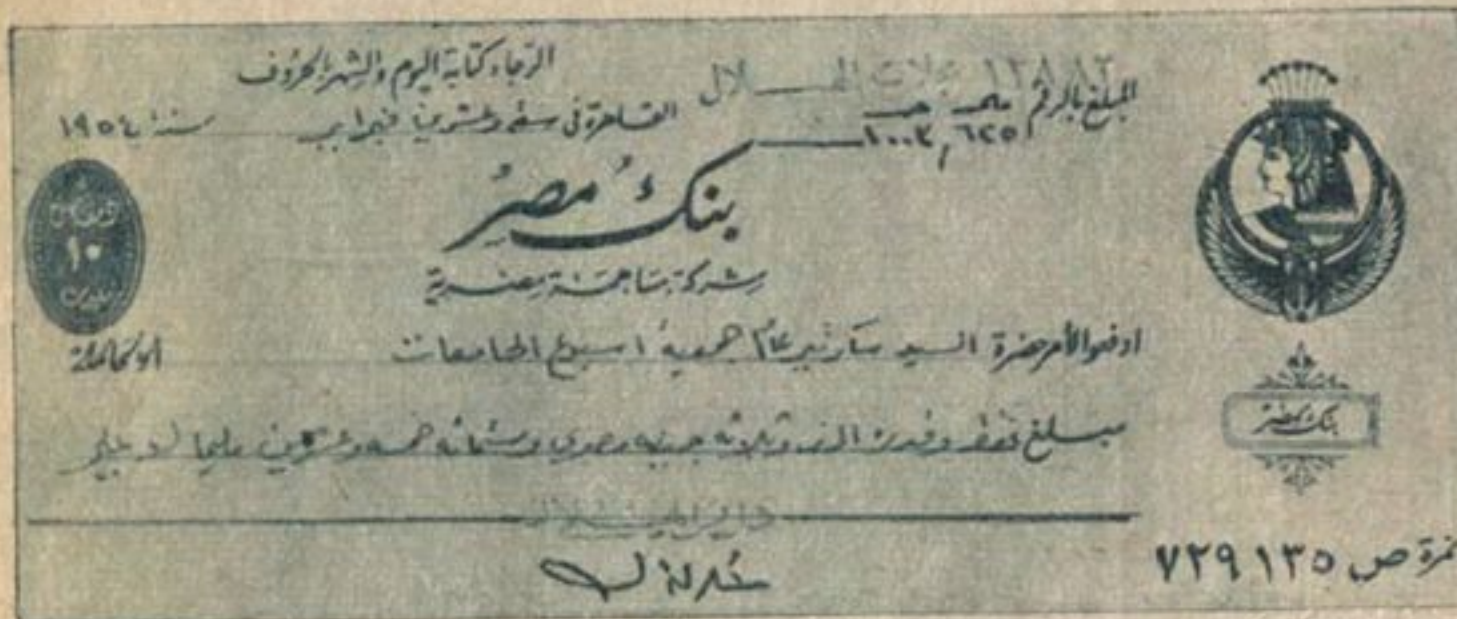 الرجاء كتابة اليوم والشهر بالحروف
المبلغ بالرقم مليم جنيه
١٠٠٣,٦٢٥
القاهرة في ستة وعشرين فبراير سنة ١٩٥٤
بنك مصر
شركة مساهمة مصرية
١٠
ادفعوا لأمر حضرة السيد سكرتير عام جمعية اسبوع الجامعات
أو لحامله
مبلغ فقط وقدره الف وثلاثة جنيه مصري وستمائة خمسة وعشرين مليما لا غير
بنك مصر
دار الهلال
نمرة ص ٧٢٩١٣٥